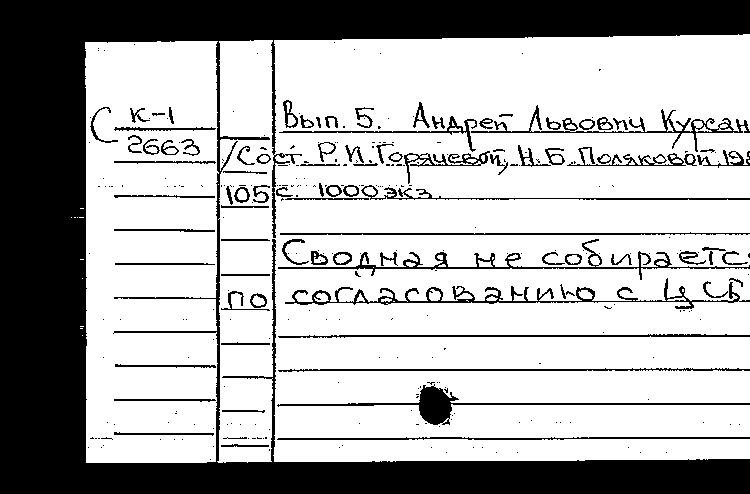 С К-1 Вып. 5. Андрей Львович Курсан
2663 /Сост. Р.И.Горячевой, Н.Б.Поляковой, 198
105 с. 1000 экз.
Сводная не собирается
по согласованию с ЦСБ